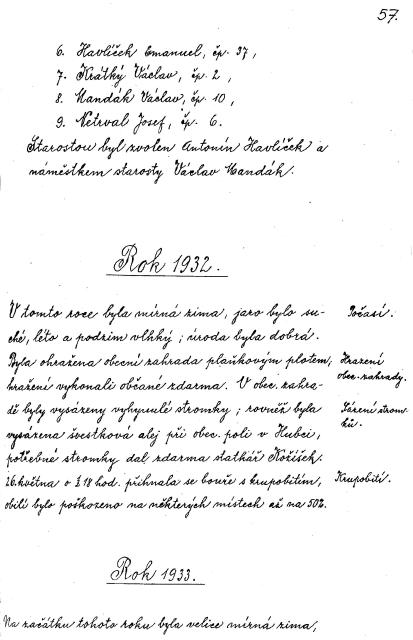 57.
6. Havlíček Emanuel, čp. 37,
7. Krátký Václav, čp. 2,
8. Mandák Václav, čp. 10,
9. Netrval Josef, čp. 6.
Starostou byl zvolen Antonín Havlíček a
náměstkem starosty Václav Mandák.
Rok 1932.
V tomto roce byla mírná zima, jaro bylo su-
ché, léto a podzim vlhký; úroda byla dobrá.
Počasí.
Byla ohražena obecní zahrada plaňkovým plotem,
hražení vykonali občané zdarma. V obec. zahra-
Hrazení
obec. zahrady.
dě byly vysázeny vyhynulé stromky; rovněž byla
vysázena švestková alej při obec. poli v Hubci,
Sázení strom-
ků.
potřebné stromky dal zdarma statkář Kožíšek.
26. května o ½ 18 hod. přihnala se bouře s krupobitím,
Krupobití.
obilí bylo poškozeno na některých místech až na 50%.
Rok 1933.
Na začátku tohoto roku byla velice mírná zima,